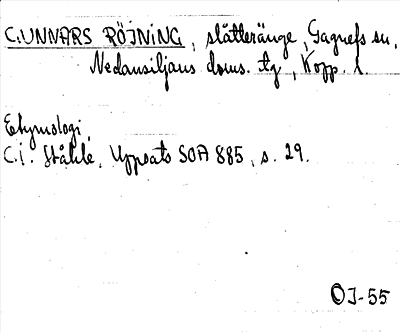 GUNNARS RÖJNING, slåtteränge, Gagnefs sn,
Nedansiljans doms. tg, Kopp. l.
Etymologi.
C.I. Ståhle, Uppsats SOA 885, s. 29.
OJ-55